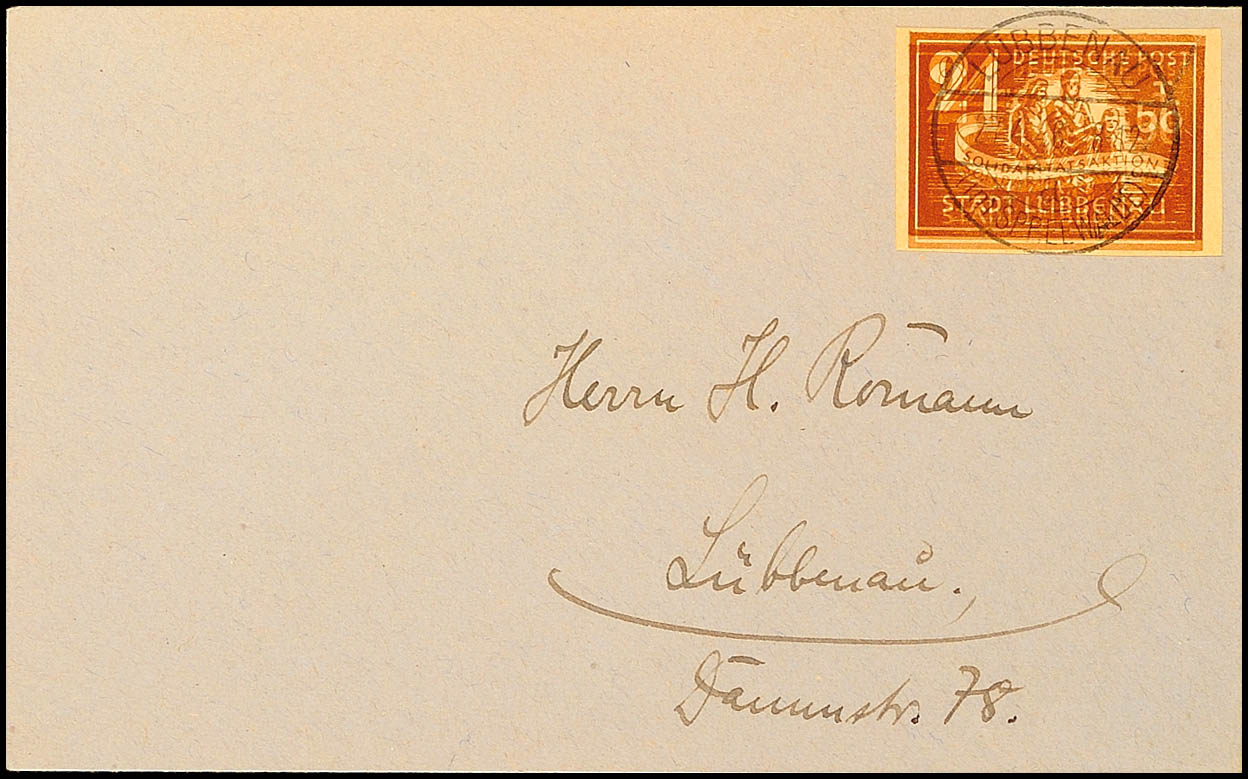 24 DEUTSCHE POST
+
SOLIDARITÄTSAKTION
STADT LÜBBENAU
LÜBBENAU
Herrn H. Rom̄ann
Lübbenau.
Dam̄str. 78.